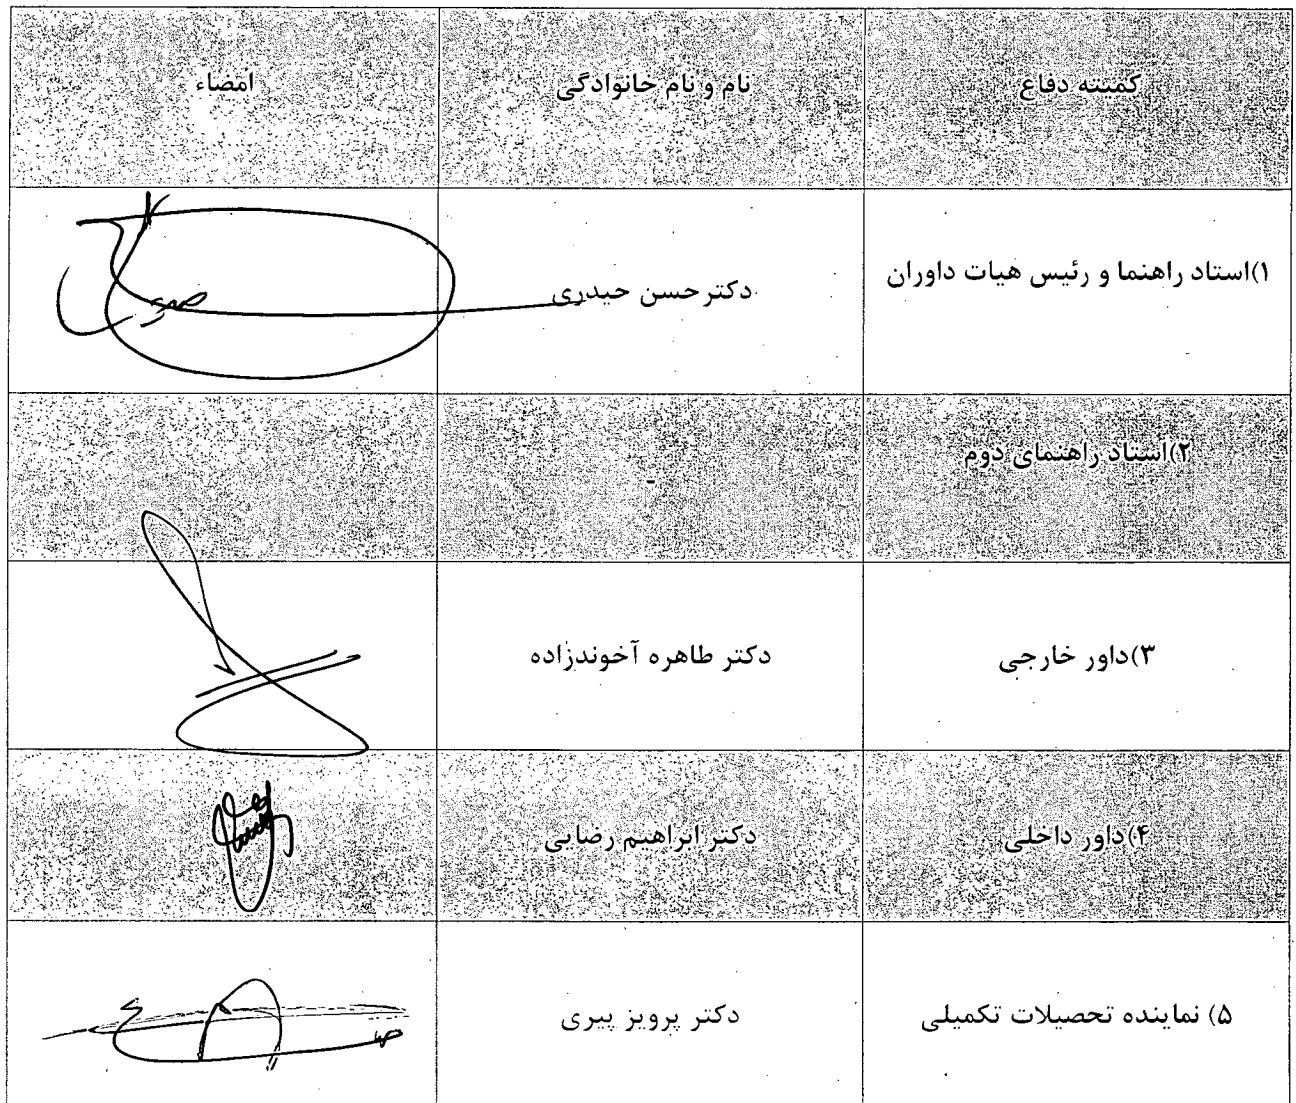 کمیته دفاع
نام و نام خانوادگی
امضاء
۱)استاد راهنما و رئیس هیات داوران
دکتر حسن حیدری
۲)استاد راهنمای دوم
-
۳)داور خارجی
دکتر طاهره آخوندزاده
۴)داور داخلی
دکتر ابراهیم رضایی
۵) نماینده تحصیلات تکمیلی
دکتر پرویز پیری